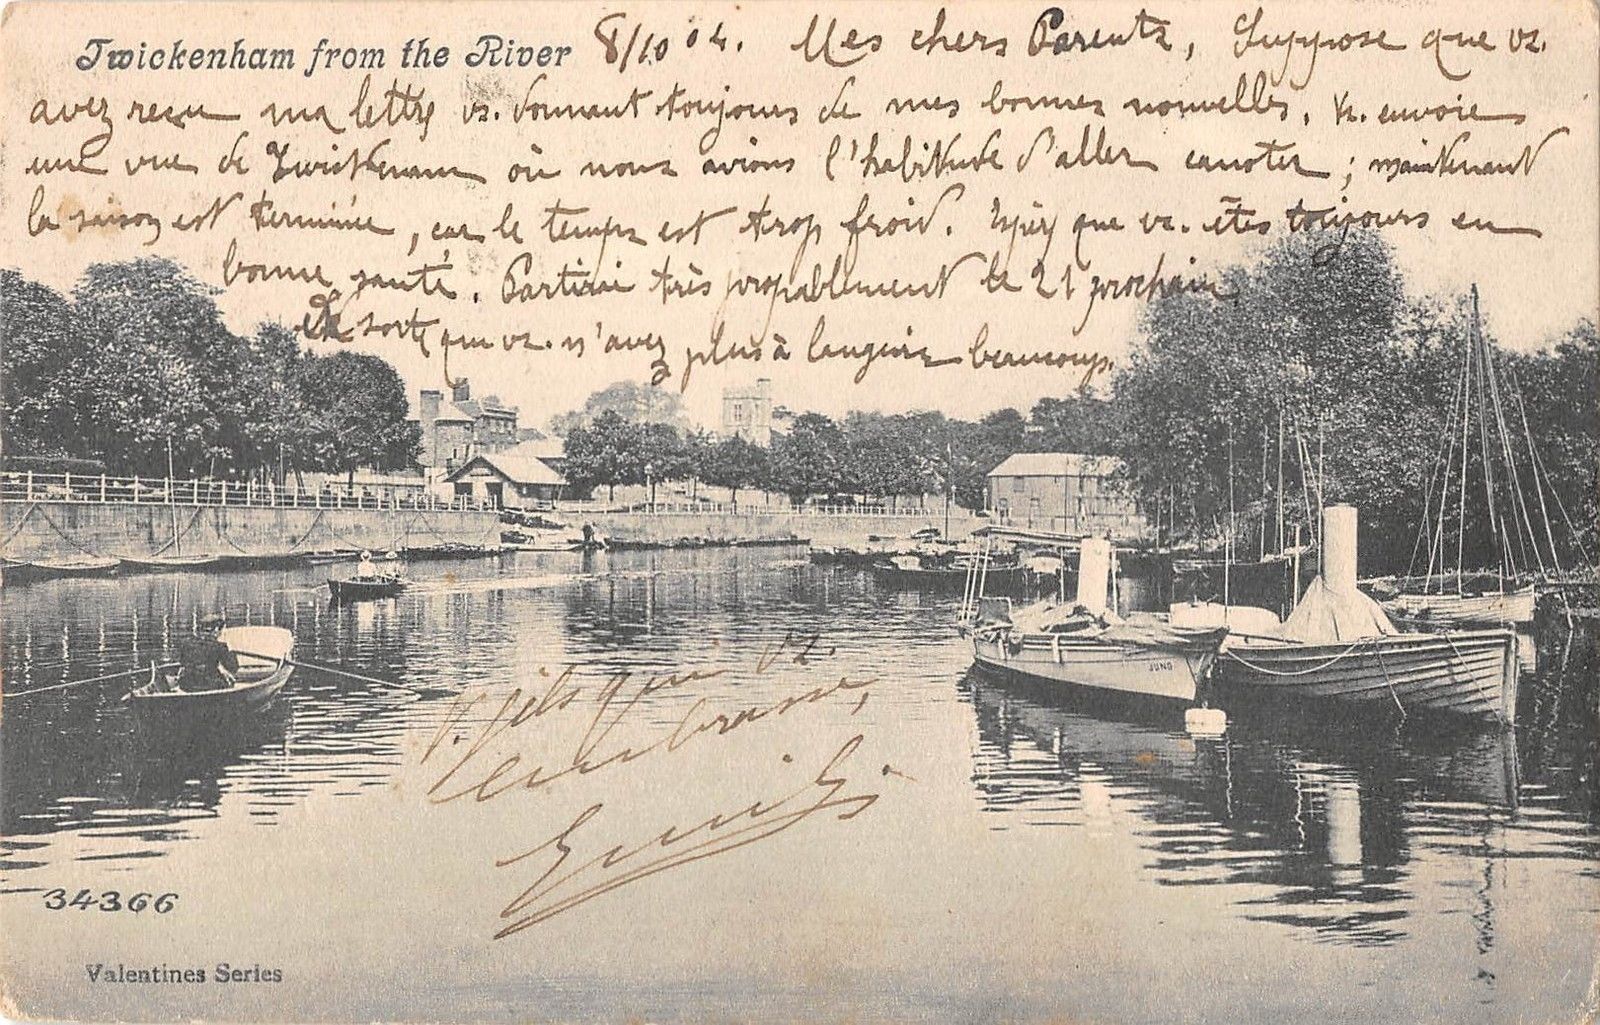 Twickenham from the River 8/10 04. Mes chers Parents, Suppose que vs.
avez reçu ma lettre vs. donnant toujours de mes bonnes nouvelles. Vs. envoie
une vue de Twickenham où nous avions l'habitude d'aller canoter ; maintenant
la saison est terminée, car le temps est trop froid. Espère que vs. êtes toujours en
bonne santé. Partirai très probablement le 21 prochain,
de sorte que vs. n'avez plus à languir beaucoup.
V. fils qui vs.
embrasse,
JUNO
34366
Valentines Series